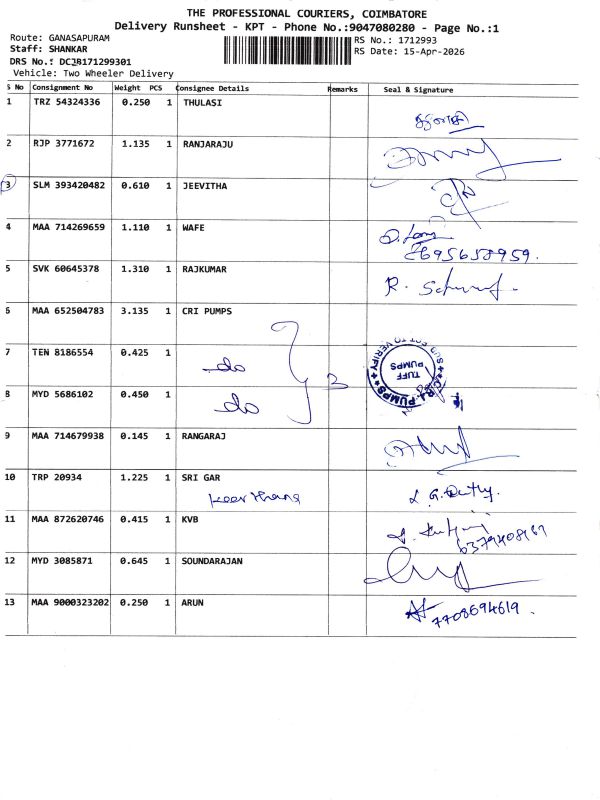 THE PROFESSIONAL COURIERS, COIMBATORE
Delivery Runsheet - KPT - Phone No.:9047080280 - Page No.:1
Route: GANASAPURAM
RS No.: 1712993
Staff: SHANKAR
RS Date: 15-Apr-2026
DRS No.: DC2B171299301
Vehicle: Two Wheeler Delivery
S No Consignment No Weight PCS Consignee Details Remarks Seal & Signature
1 TRZ 54324336 0.250 1 THULASI
2 RJP 3771672 1.135 1 RANJARAJU
3 SLM 393420482 0.610 1 JEEVITHA
4 MAA 714269659 1.110 1 WAFE
8695658959.
5 SVK 60645378 1.310 1 RAJKUMAR
R.
6 MAA 652504783 3.135 1 CRI PUMPS
7 TEN 8186554 0.425 1
do
3
SUBJECT TO VERIFY
TUFF PUMPS
8 MYD 5686102 0.450 1
do
9 MAA 714679938 0.145 1 RANGARAJ
10 TRP 20934 1.225 1 SRI GAR
Keerthana
11 MAA 872620746 0.415 1 KVB
12 MYD 3085871 0.645 1 SOUNDARAJAN
13 MAA 9000323202 0.250 1 ARUN
7708694619.